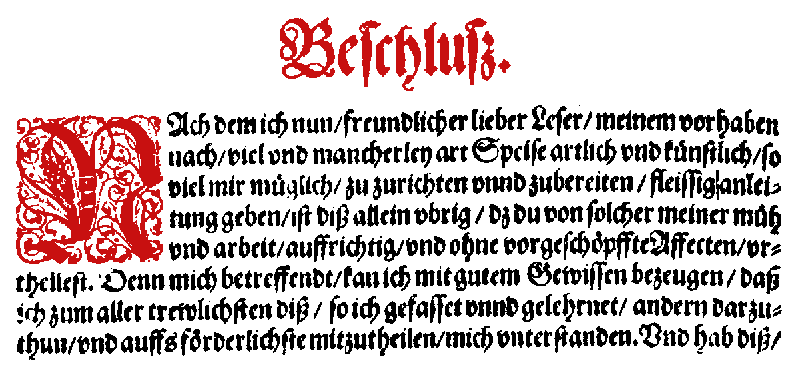 Beschlusz.
NAch dem ich nun/freundlicher lieber Leser/ meinem vorhaben
nach/viel vnd mancherley art Speise artlich vnd künstlich/so
viel mir müglich/ zu zurichten vnnd zubereiten / fleissig anlei⸗
tung geben/ist diß allein vbrig / dz du von solcher meiner müh
vnd arbeit/auffrichtig/vnd ohne vorgeschöpffte Affecten/vr⸗
theilest. Denn mich betreffendt/kan ich mit gutem Gewissen bezeugen / daß
ich zum aller trewlichsten diß / so ich gefasset vnnd gelehrnet/ andern darzu⸗
thun/vnd auffs förderlichste mitzutheilen/mich vnterstanden. Vnd hab diß/